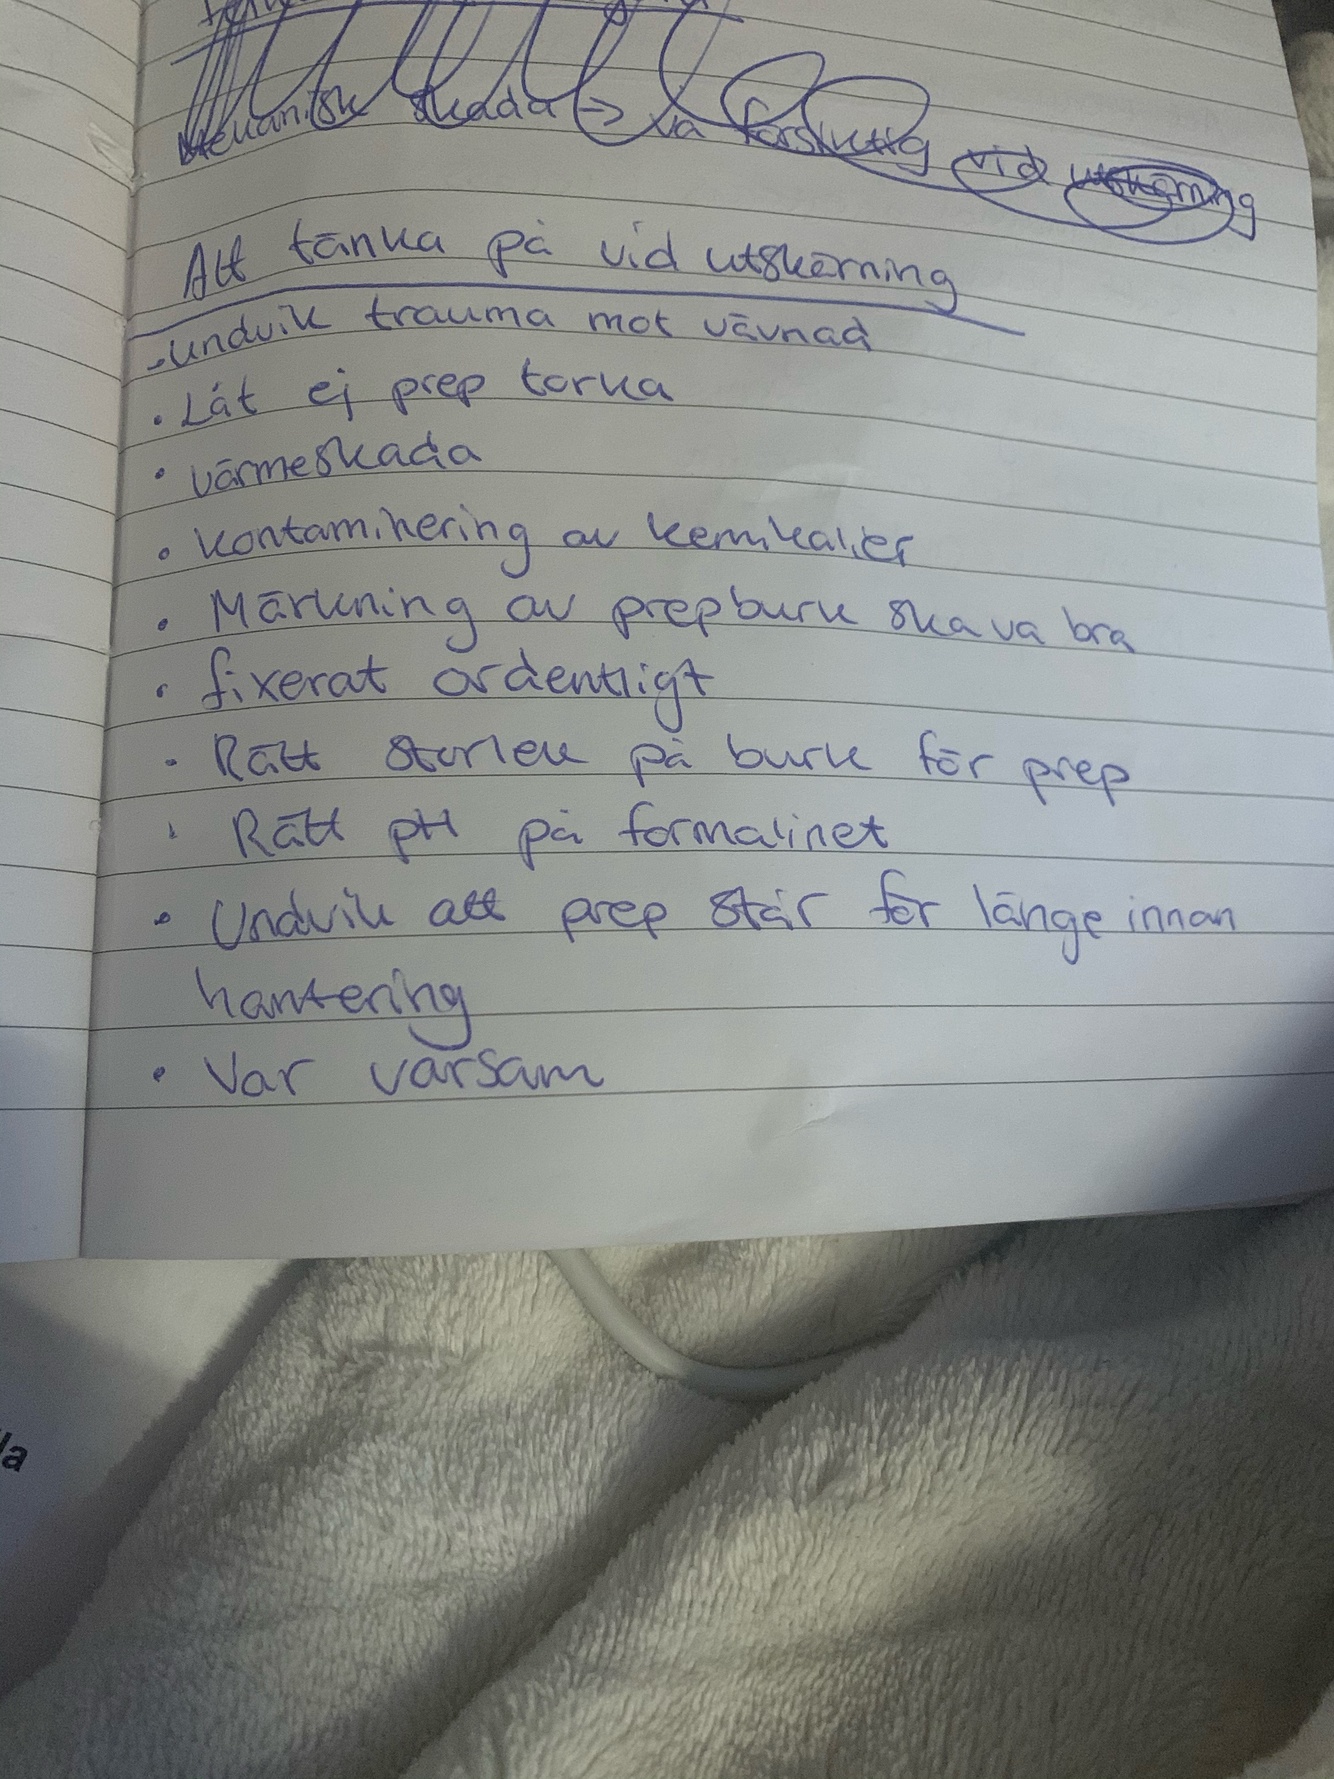 Mekanisk skada → va försiktig vid utskärning
Att tänka på vid utskärning
- undvik trauma mot vävnad
• Låt ej prep torka
• värmeskada
• kontaminering av kemikalier
• Märkning av prepburk ska va bra
• fixerat ordentligt
• Rätt storlek på burk för prep
• Rätt pH på formalinet
• Undvik att prep står för länge innan
hantering
• Var varsam
la